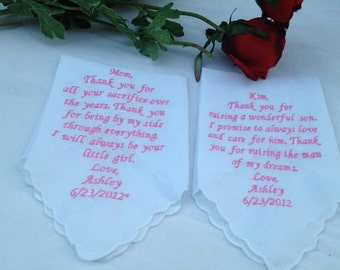 Mom,
Thank you for
all your sacrifice over
the years. Thank you
for being by my side
through everything.
I will always be your
little girl.
Love,
Ashley
6/23/2012
Kim,
Thank you for
raising a wonderful son.
I promise to always love
and care for him. Thank
you for raising the man
of my dreams.
Love,
Ashley
6/23/2012